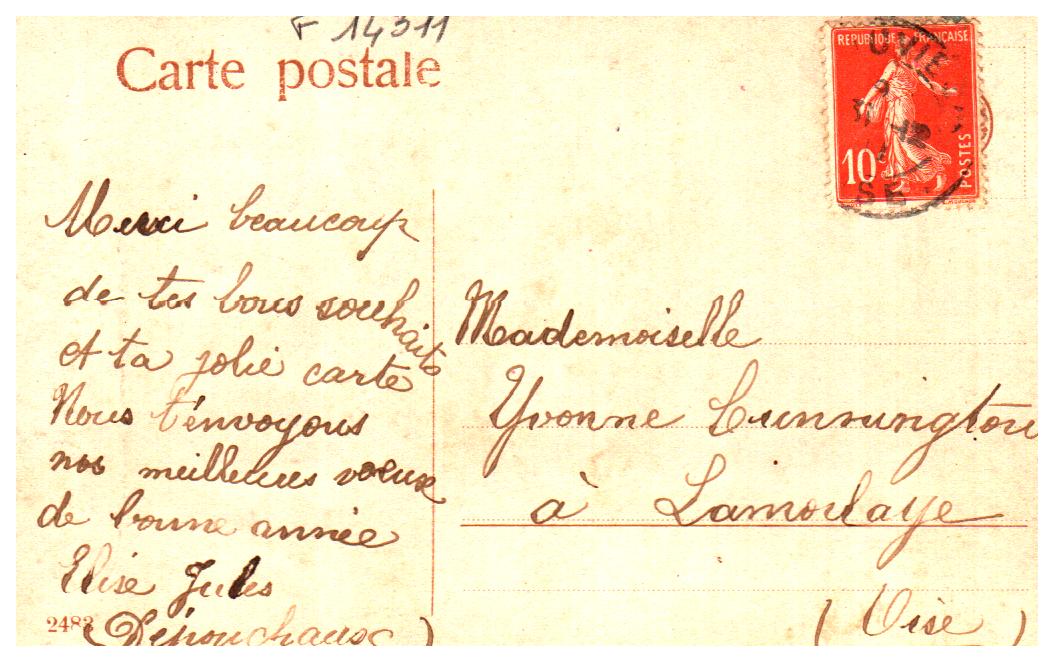 F 14311
Carte postale
REPUBLIQUE FRANÇAISE
10
POSTES
Merci beaucoup
de tes bons souhaits
et ta jolie carte
Nous t'envoyons
nos meilleures voeux
de bonne année
Elise Jules
2483
Mademoiselle
Yvonne
à Lamorlaye
(Oise)